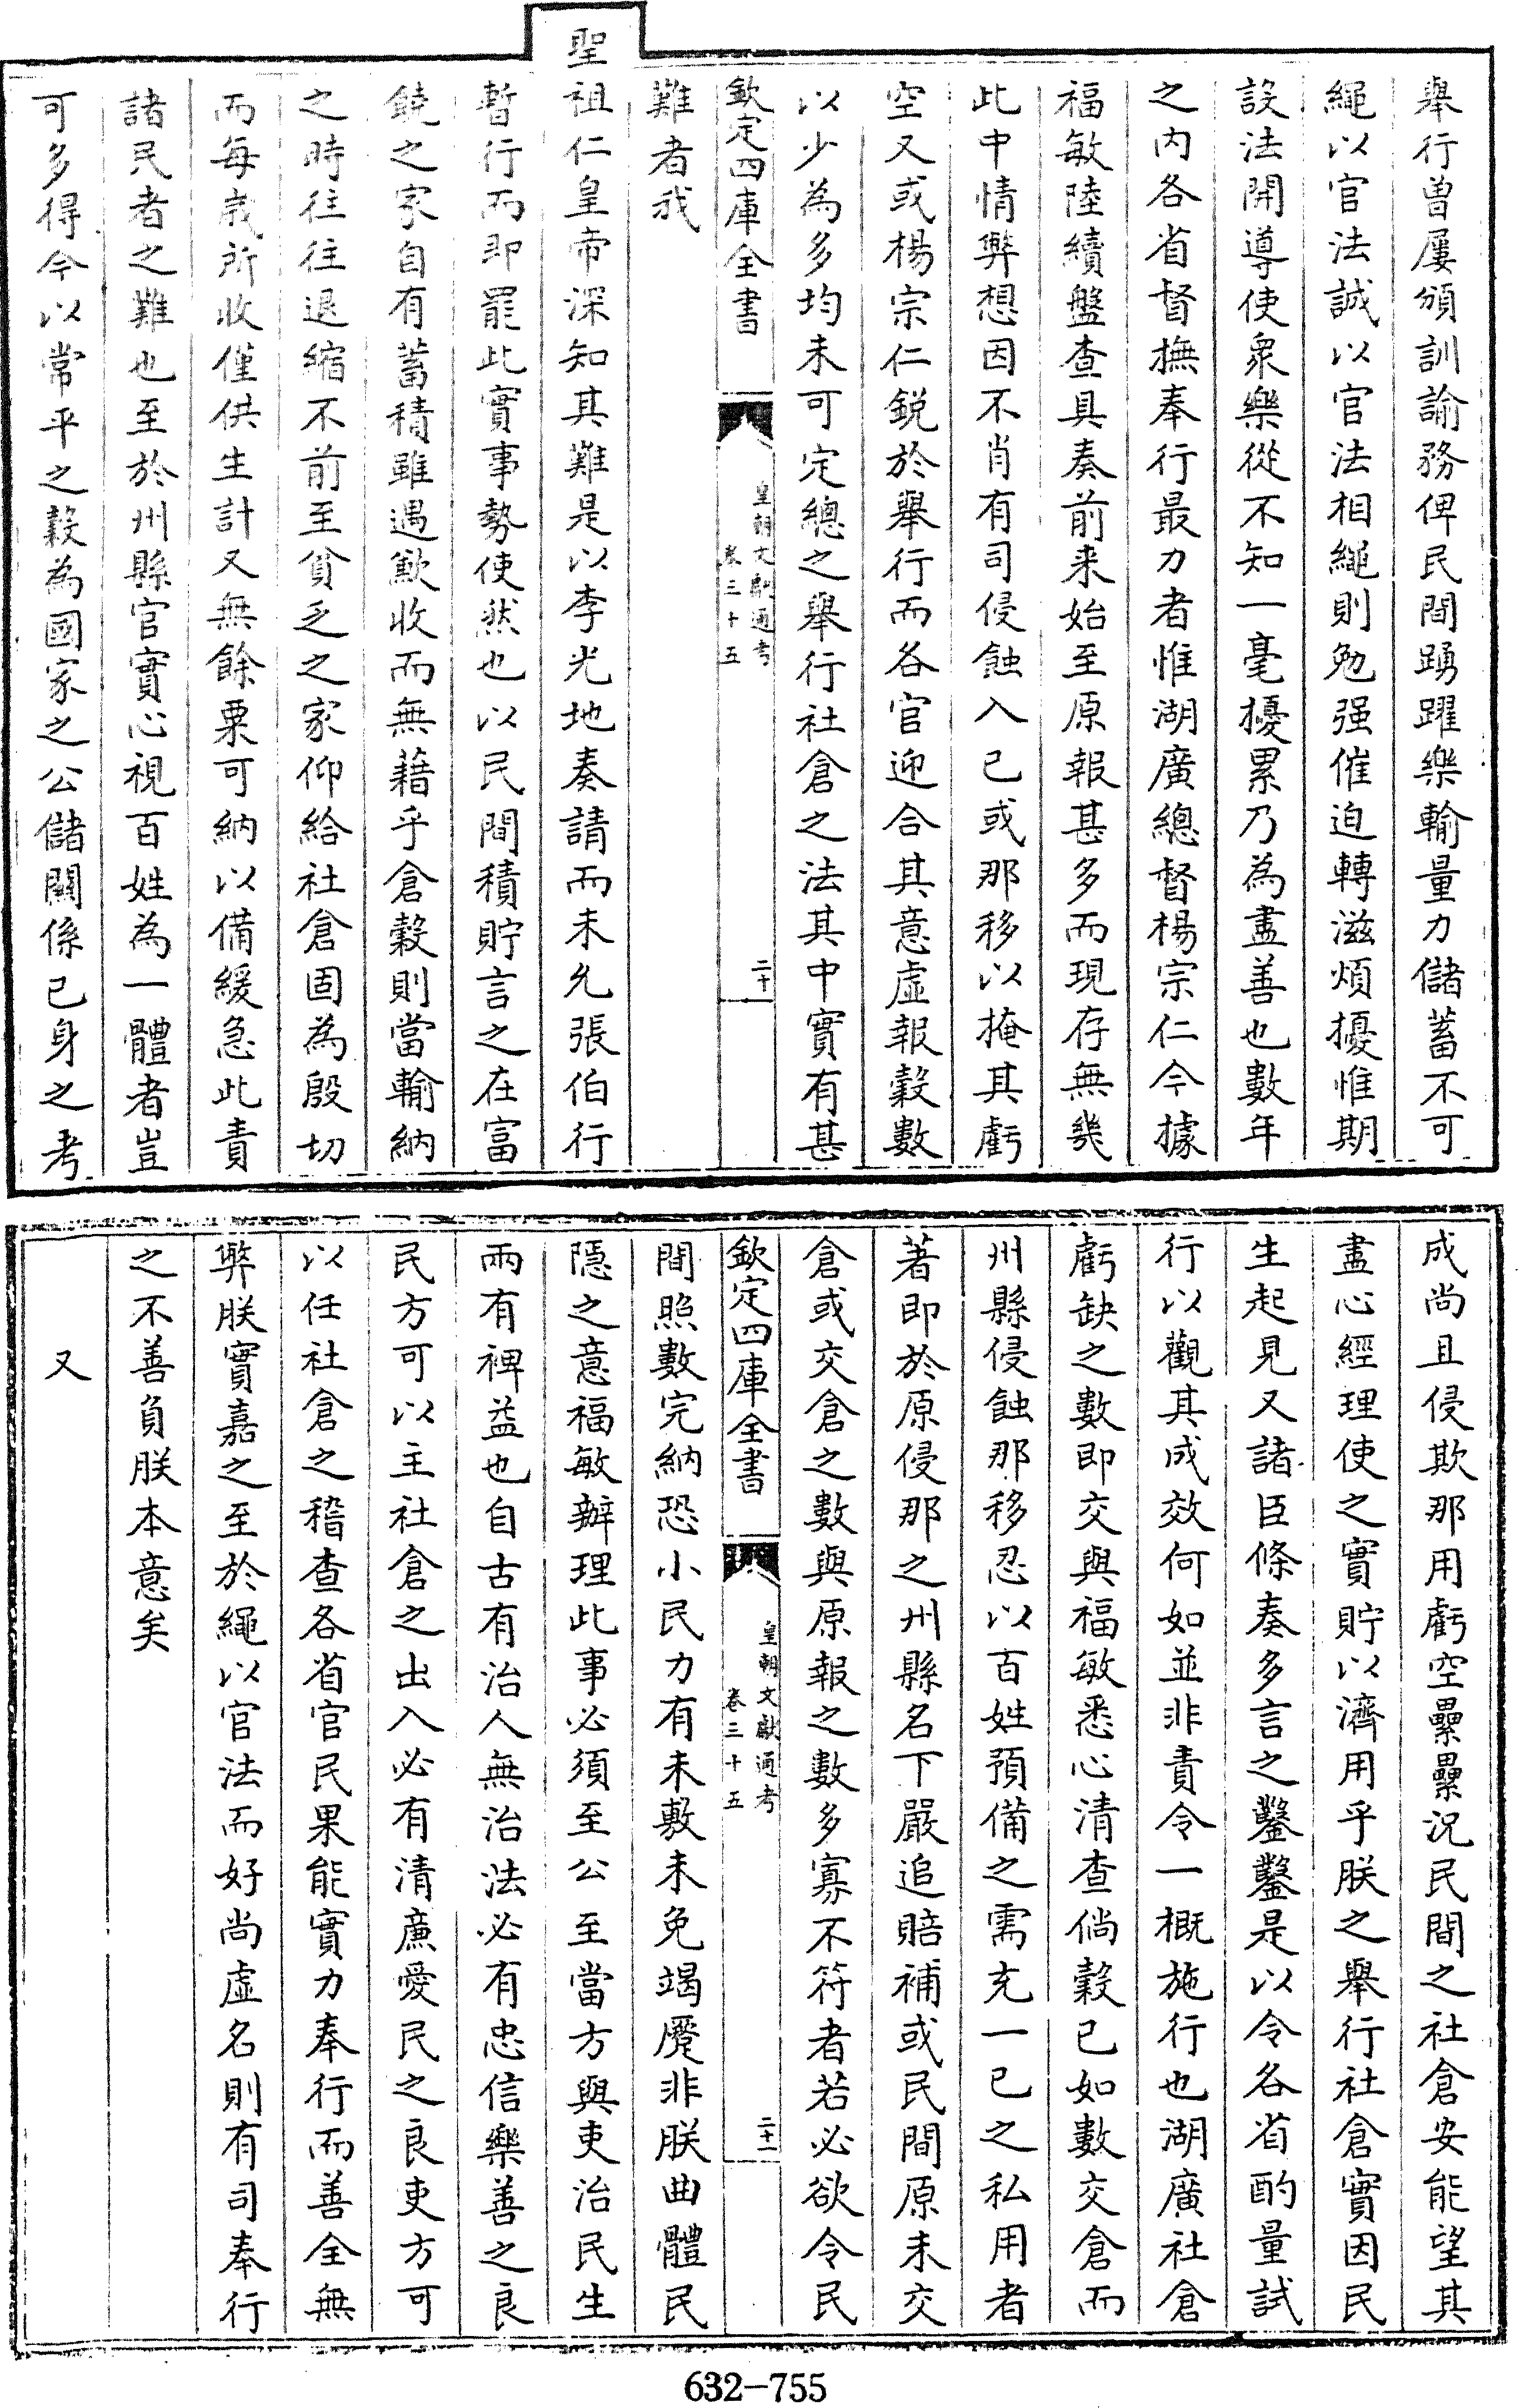 舉行曾屢頒訓諭務俾民間踴躍樂輸量力儲蓄不可
繩以官法誠以官法相繩則勉强催迫轉滋煩擾惟期
設法開導使衆樂從不知一毫擾累乃為盡善也數年
之内各省督撫奉行最力者惟湖廣總督楊宗仁今據
福敏陸續盤查具奏前来始至原報甚多而現存無幾
此中情弊想因不肖有司侵蝕入己或那移以掩其虧
空又或楊宗仁鋭於舉行而各官迎合其意虛報穀數
以少為多均未可定總之舉行社倉之法其中實有甚
欽定四庫全書
皇朝文獻通考
卷三十五
二十
難者我
聖祖仁皇帝深知其難是以李光地奏請而未允張伯行
暫行而即罷此實事勢使然也以民間積貯言之在富
饒之家自有蓄積雖遇歉收而無藉乎倉穀則當輸納
之時往往退縮不前至貧乏之家仰給社倉固為殷切
而每歲所收僅供生計又無餘粟可納以備緩急此責
諸民者之難也至於州縣官實心視百姓為一體者豈
可多得今以常平之穀為國家之公儲關係己身之考
成尚且侵欺那用虧空纍纍况民間之社倉安能望其
盡心經理使之實貯以濟用乎朕之舉行社倉實因民
生起見又諸臣條奏多言之鑿鑿是以令各省酌量試
行以觀其成效何如並非責令一概施行也湖廣社倉
虧缺之數即交與福敏悉心清查倘穀已如數交倉而
州縣侵蝕那移忍以百姓預備之需充一己之私用者
著即於原侵那之州縣名下嚴追賠補或民間原未交
倉或交倉之數與原報之數多寡不符者若必欲令民
欽定四庫全書
皇朝文獻通考
卷三十五
二十一
間照數完納恐小民力有未敷未免竭蹷非朕曲體民
隱之意福敏辦理此事必須至公至當方與吏治民生
兩有裨益也自古有治人無治法必有忠信樂善之良
民方可以主社倉之出入必有清廉愛民之良吏方可
以任社倉之稽查各省官民果能實力奉行而善全無
弊朕實嘉之至於繩以官法而好尚虛名則有司奉行
之不善負朕本意矣
又
632-755